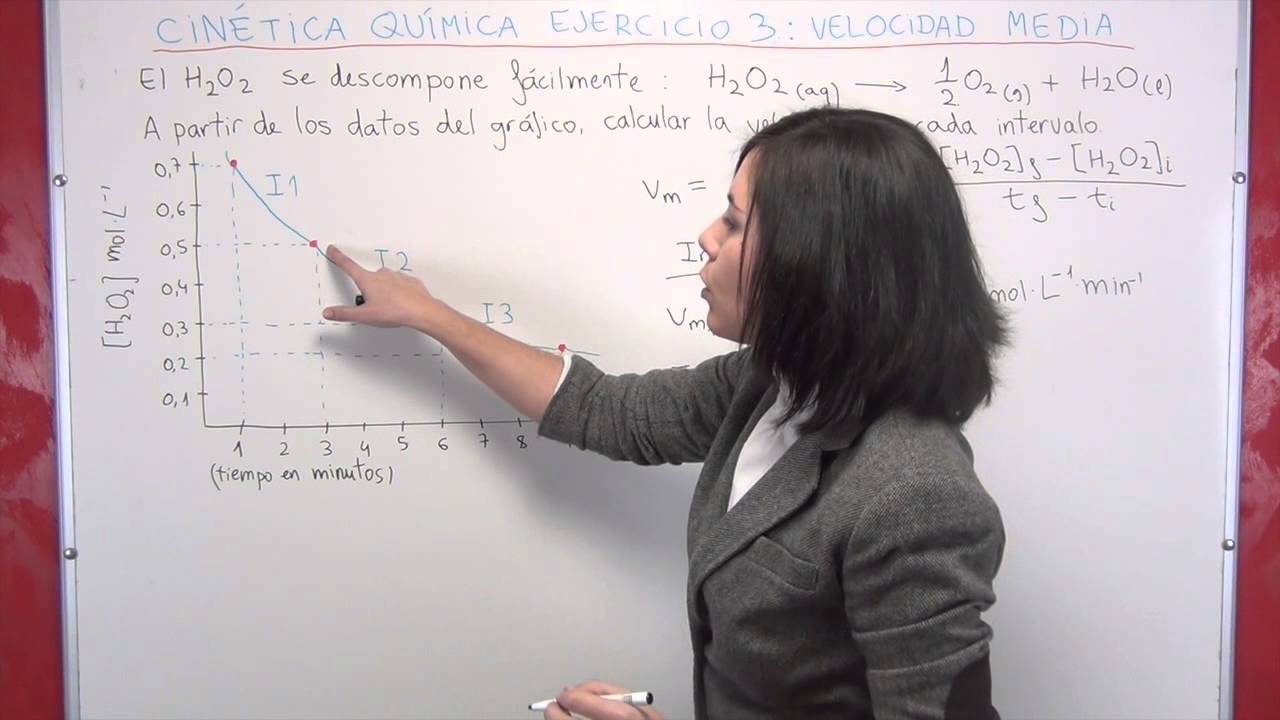 CINÉTICA QUÍMICA EJERCICIO 3: VELOCIDAD MEDIA
El H₂O₂ se descompone fácilmente : H₂O₂(aq) → ½O₂(g) + H₂O(l)
A partir de los datos del gráfico, calcular la cada intervalo.
[H₂O₂] mol·L⁻¹
0,7
0,6
0,5
0,4
0,3
0,2
0,1
I1
I2
I3
1 2 3 4 5 6 7 8
(tiempo en minutos)
Vm =
[H₂O₂]f − [H₂O₂]i
tf − ti
mol·L⁻¹·min⁻¹
Vm